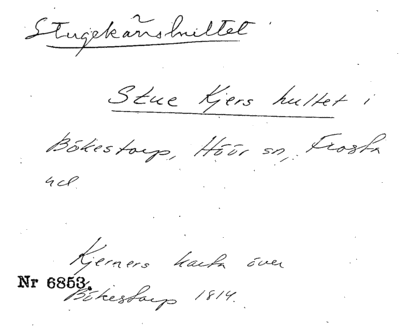 Stugekärshultet
Stue Kjers hultet i
Bökestorp, Höör sn, Frosta
hd
Kjerners karta över
Nr 6853.
Bökestorp 1814.